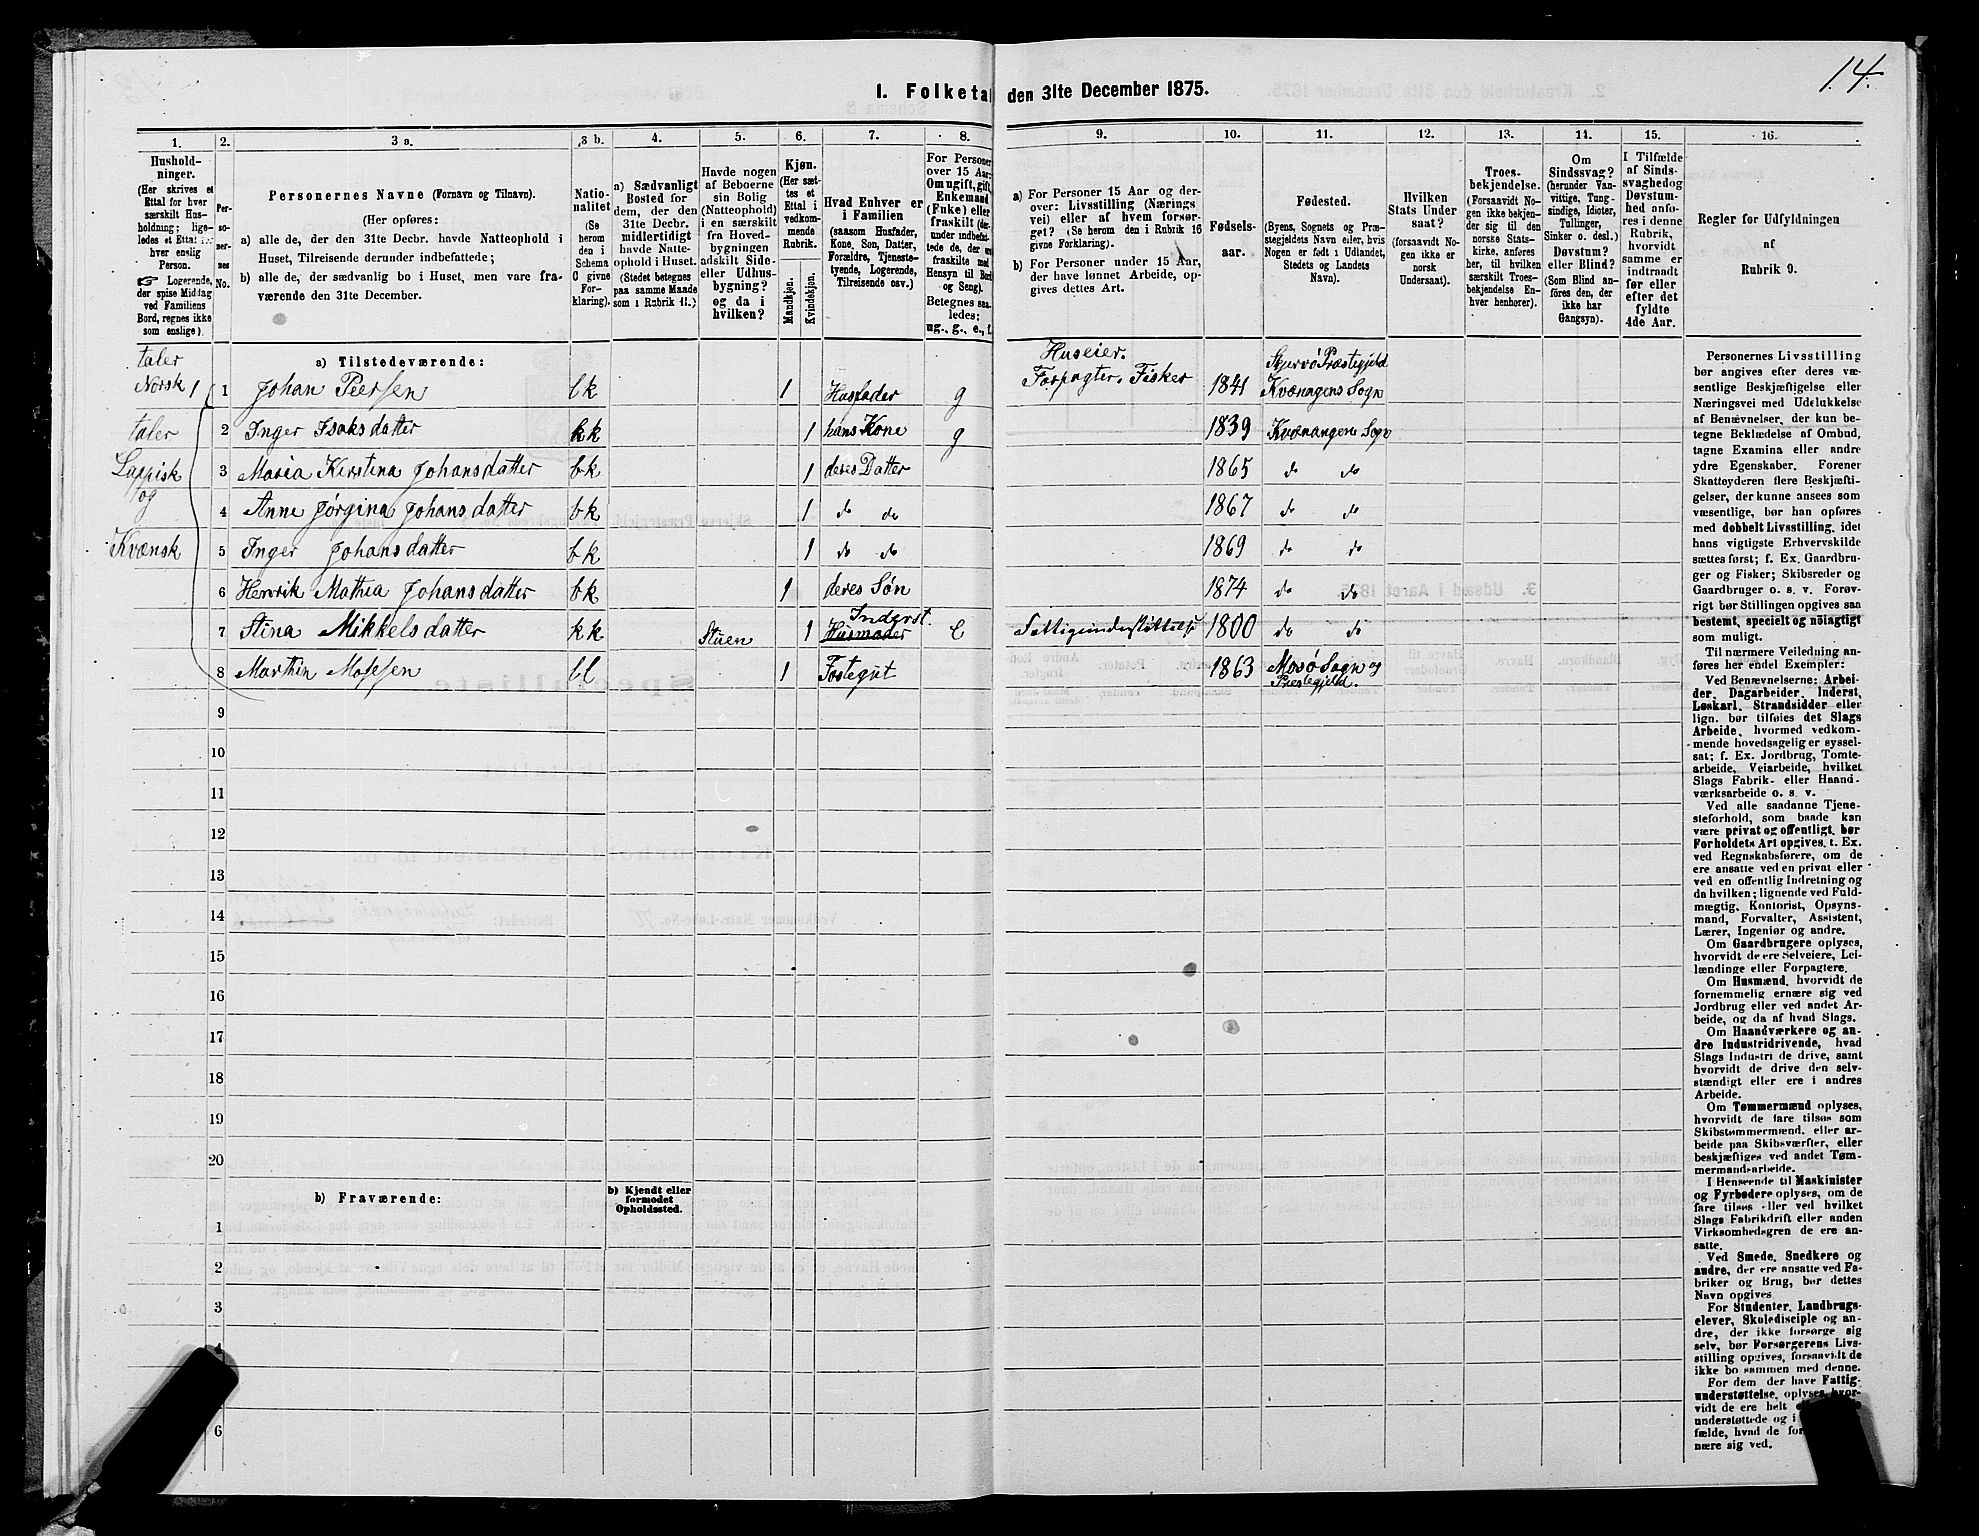 14.
I. Folketal den 31te December 1875.
1. 2. 3 a. 3 b. 4. 5. 6. 7. 8. 9. 10. 11. 12. 13. 14. 15. 16.
Hushold-
ninger.
(Her skrives et
Ettal for hver
særskilt Hus-
holdning; lige-
ledes et Ettal for
hver enslig
Person.
☞ Logerende,
der spise Middag
ved Familiens
Bord, regnes ikke
som enslige).
Per-
so-
ner-
nes
No.
Personernes Navne (Fornavn og Tilnavn).
(Her opføres:
a) alle de, der den 31te Decbr. havde Natteophold i
Huset, Tilreisende derunder indbefattede;
b) alle de, der sædvanlig bo i Huset, men vare fra-
værende den 31te December.
Natio-
nalitet
(Se
herom
den i
Schema
C givne
For-
klaring).
a) Sædvanligt
Bosted for
dem, der den
31te Decbr.
midlertidigt
havde Natte-
ophold i Huset.
(Stedet betegnes
paa samme Maade
som i Rubrik 11.)
Havde nogen
af Beboerne
sin Bolig
(Natteophold)
i en særskilt
fra Hoved-
bygningen
adskilt Side-
eller Udhus-
bygning?
og da i
hvilken?
Kjøn.
(Her sæt-
tes et
Ettal i
vedkom-
mende
Rubrik.
Mandkjøn.
Kvindekjøn.
Hvad Enhver er
i Familien
(saasom Husfader,
Kone, Søn, Datter,
Forældre, Tjeneste-
tyende, Logerende,
Tilreisende osv.)
For Personer
over 15 Aar:
Om ugift, gift,
Enkemand
(Enke) eller
fraskilt (der-
under indbefat-
tede de, der ere
fraskilte med
Hensyn til Bord
og Seng).
Betegnes saa-
ledes:
ug., g., e., f.
a) For Personer 15 Aar og der-
over: Livsstilling (Nærings
vei) eller af hvem forsør-
get? (Se herom den i Rubrik 16
givne Forklaring).
b) For Personer under 15 Aar,
der have lønnet Arbeide, op-
gives dettes Art.
Fødsels-
aar.
Fødested.
(Byens, Sognets og Præ-
stegjeldets Navn eller, hvis
Nogen er født i Udlandet,
Stedets og Landets
Navn).
Hvilken
Stats Under
saat?
(forsaavidt No-
gen ikke er
norsk
Undersaat).
Troes-
bekjendelse.
(Forsaavidt No-
gen ikke bekjen-
der sig til den
norske Stats-
kirke, anføres
her, til hvilken
særskilt Troes-
bekjendelse En-
hver henhører).
Om
Sindssvag?
(herunder Van-
vittige, Tung-
sindige, Idioter,
Tullinger,
Sinker o. desl.)
Døvstum?
eller Blind?
(Som Blind an-
føres den, der
ikke har
Gangsyn).
I Tilfælde
af Sinds-
svaghed og
Døvstum-
hed anfø-
res i denne
Rubrik,
hvorvidt
samme er
indtraadt
før eller
efter det
fyldte
4de Aar.
Regler for Udfyldningen
af
Rubrik 9.
a) Tilstedeværende:
taler
Norsk 1 1 Johan Peersen bk 1 Husfader g Huseier. Forpagter. Fisker 1841 Skjervø Præstegjeld Kvænagens Sogn
taler 2 Inger Isaksdatter kk 1 hans Kone g 1839 Kvænangens Sogn
Lappisk 3 Maria Kirstina Johansdatter bk 1 deres Datter 1865 do do
og 4 Anne Jørgina Johansdatter bk 1 do do 1867 do do
Kvænsk 5 Inger Johansdatter bk 1 do do 1869 do do
6 Henrik Mathia Johansdatter bk 1 deres Søn 1874 do do
7 Stina Mikkelsdatter kk Stuen 1 Inderst. Husmoder e Fattigunderstøttelse 1800 do do
8 Marthin Mosesen bl 1 Fostegut 1863 Mosø Sogn og Prestegjeld.
9
10
11
12
13
14
15
16
17
18
19
20
b) Fraværende:
b) Kjendt eller
formodet
Opholdssted.
1
2
3
4
6
Personernes Livsstilling
bør angives efter deres væ-
sentlige Beskjæftigelse eller
Næringsvei med Udelukkelse
af Benævnelser, der kun be-
tegne Beklædelse af Ombud,
tagne Examina eller andre
ydre Egenskaber. Forener
Skatteyderen flere Beskjæfti-
gelser, der kunne ansees som
væsentlige, bør han opføres
med dobbelt Livsstilling, idet
hans vigtigste Erhvervskilde
sættes først; f. Ex. Gaardbru-
ger og Fisker; Skibsreder og
Gaardbruger o. s. v. Forøv-
rigt bør Stillingen opgives saa
bestemt, specielt og nöiagtigt
som muligt.
Til nærmere Veiledning an-
føres her endel Exempler:
Ved Benævnelserne: Arbei-
der, Dagarbeider, Inderst,
Løskarl, Strandsidder eller
lign. bør tilføies det Slags
Arbeide, hvormed vedkom-
mende hovedsagelig er syssel-
sat; f. Ex. Jordbrug, Tomte-
arbeide, Veiarbeide, hvilket
Slags Fabrik- eller Haand-
værksarbeide o. s. v.
Ved alle saadanne Tjene-
steforhold, som baade kan
være privat og offentligt, bør
Forholdets Art opgives. t. Ex.
ved Regnskabsførere, om de
ere ansatte ved en privat eller
ved en offentlig Indretning og
da hvilken; lignende ved Fuld-
mægtig, Kontorist, Opsyns-
mand, Forvalter, Assistent,
Lærer, Ingeniør og andre.
Om Gaardbrugere oplyses,
hvorvidt de ere Selveiere, Lei-
lændinge eller Forpagtere.
Om Husmænd, hvorvidt de
fornemmelig ernære sig ved
Jordbrug eller ved andet Ar-
beide, og da af hvad Slags.
Om Haandværkere og an-
dre Industridrivende, hvad
Slags Industri de drive, samt
hvorvidt de drive den selv-
stændigt eller ere i andres
Arbeide.
Om Tømmermænd oplyses,
hvorvidt de fare tilsøs som
Skibstømmermænd, eller ar-
beide paa Skibsværfter, eller
beskjæftiges ved andet Tøm-
mermandsarbeide.
I Henseende til Maskinister
og Fyrbødere oplyses, om de
fare tilsøs eller ved hvilket
Slags Fabrikdrift eller anden
Virksomhedsgren de ere an-
satte.
Ved Smede, Snedkere og
andre, der ere ansatte ved Fa-
briker og Brug, bør dettes
Navn opgives.
For Studenter, Landbrugs-
elever, Skoledisciple og an-
dre, der ikke forsørge sig
selv, bør Forsørgerens Livs-
stilling opgives, forsaavidt de
ikke bo sammen med denne.
For dem, der have Fattig-
understøttelse, oplyses hvor-
vidt de ere helt
understøttede og i
fælde, hvad de for
nære sig ved.